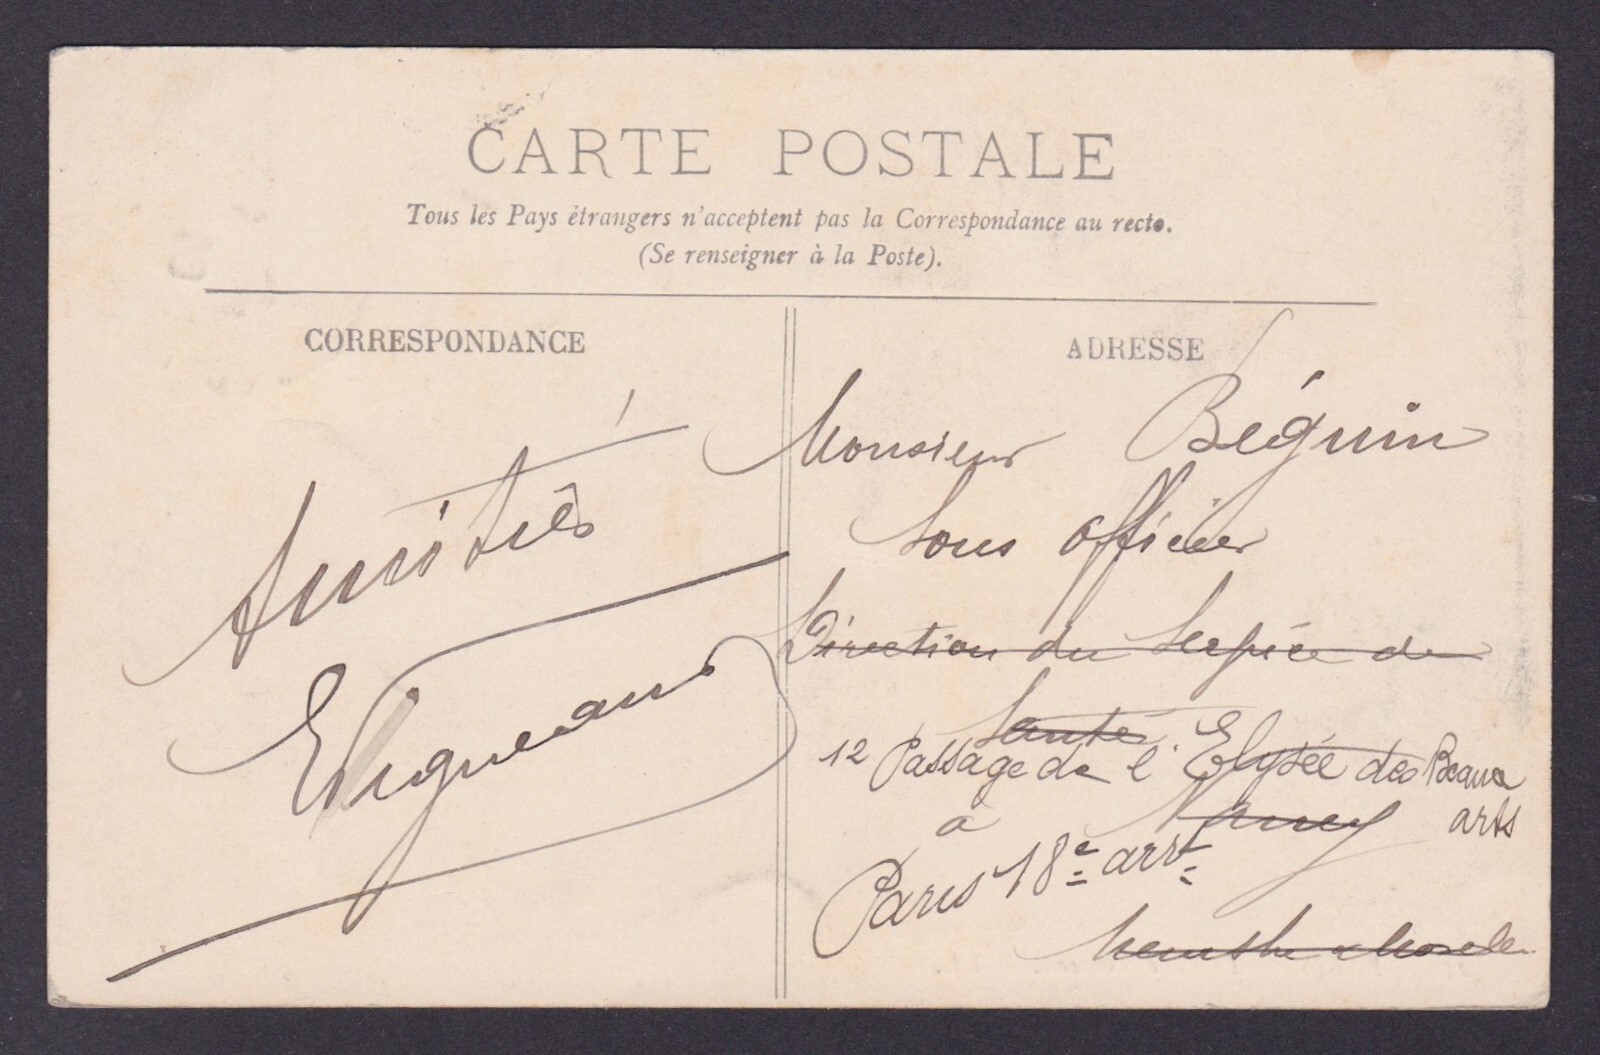 CARTE POSTALE
Tous les Pays étrangers n'acceptent pas la Correspondance au recto.
(Se renseigner à la Poste).
CORRESPONDANCE
Amitiés
ADRESSE
Monsieur Béguin
Sous officier
Direction du Service de
Santé
12 Passage de l'Elysée des Beaux
arts
à Nancy
Paris 18e arrt
Meurthe & Moselle